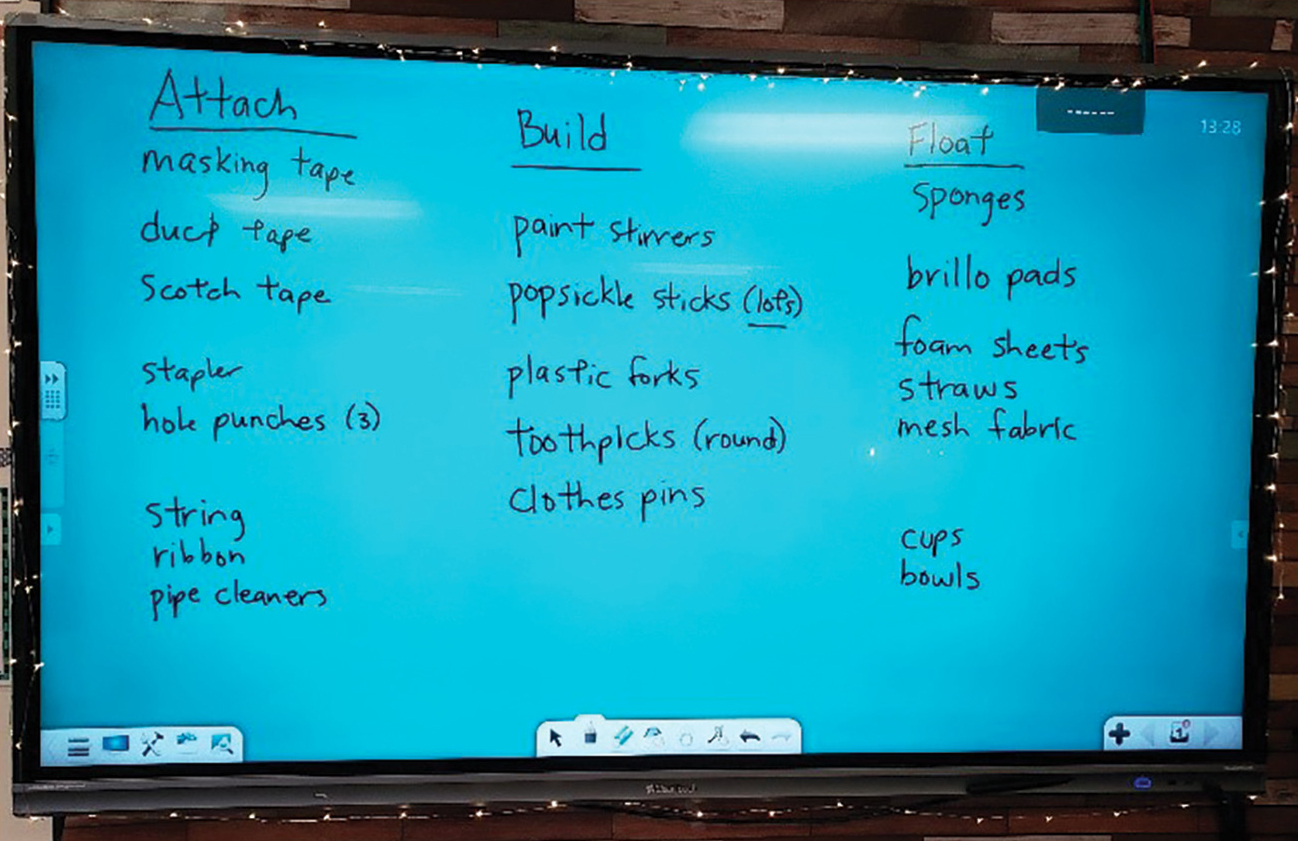 Attach
masking tape
duct tape
Scotch tape
stapler
hole punches (3)
string
ribbon
pipe cleaners
Build
paint stirrers
popsickle sticks (lots)
plastic forks
toothpicks (round)
Clothes pins
Float
Sponges
brillo pads
foam sheets
straws
mesh fabric
cups
bowls
13:28
1